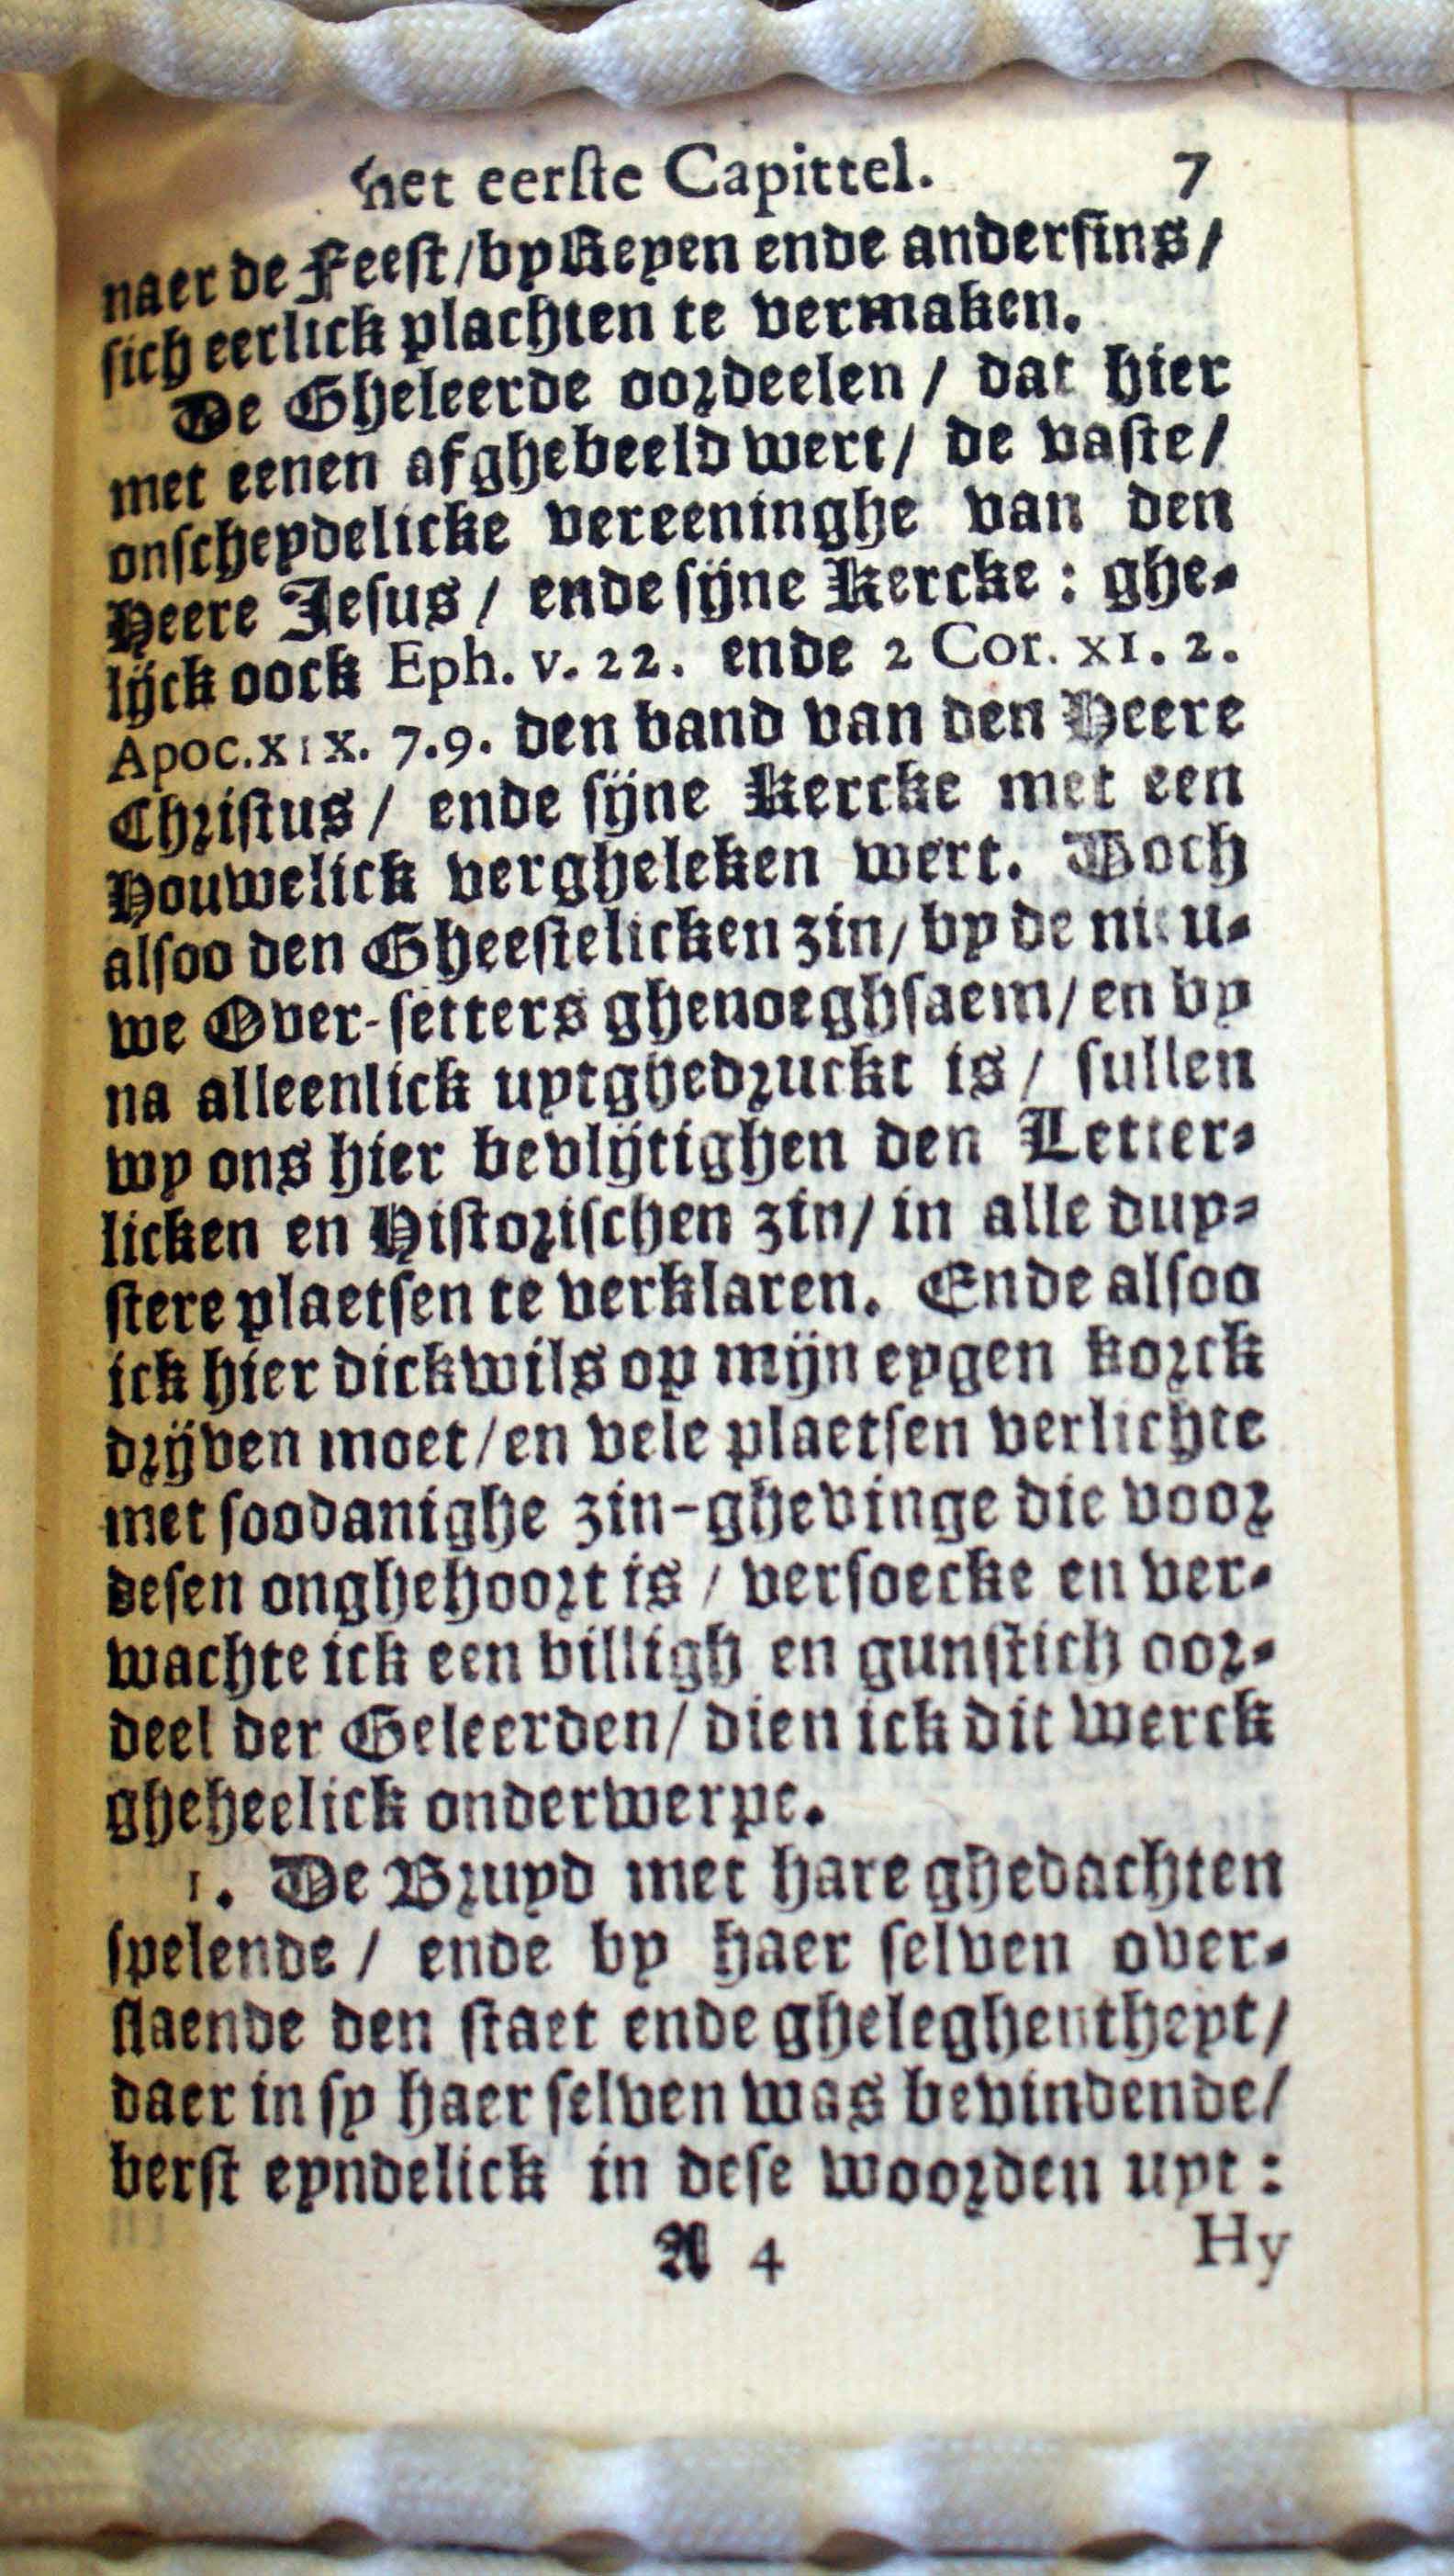 het eerſte Capittel. 7
naer de Feeſt / by Reyen ende anderſins /
ſich eerlick plachten te vermaken.
De Gheleerde oordeelen / dat hier
met eenen afghebeeld wert / de vaſte /
onſcheydelicke vereeninghe van den
Heere Jeſus / ende ſijne Kercke : ghe-
lijck oock Eph. v. 22. ende 2 Cor. xi. 2.
Apoc. xix. 7.9. den band van den Heere
Chriſtus / ende ſijne Kercke met een
Houwelick vergheleken wert. Doch
alſoo den Gheeſtelicken zin / by de nieu-
we Over-ſetters ghenoeghſaem / en by
na alleenlick uytghedruckt is / ſullen
wy ons hier bevlijtighen den Letter-
licken en Hiſtoriſchen zin / in alle duy-
ſtere plaetſen te verklaren. Ende alſoo
ick hier dickwils op mijn eygen korck
drijven moet / en vele plaetſen verlichte
met ſoodanighe zin-ghevinge die voor
deſen onghehoort is / verſoecke en ver-
wachte ick een billigh en gunſtich oor-
deel der Geleerden / dien ick dit werck
gheheelick onderwerpe.
1. De Bruyd met hare ghedachten
ſpelende / ende by haer ſelven over-
ſlaende den ſtaet ende gheleghentheyt /
daer in ſy haer ſelven was bevindende /
berſt eyndelick in deſe woorden uyt :
A 4 Hy